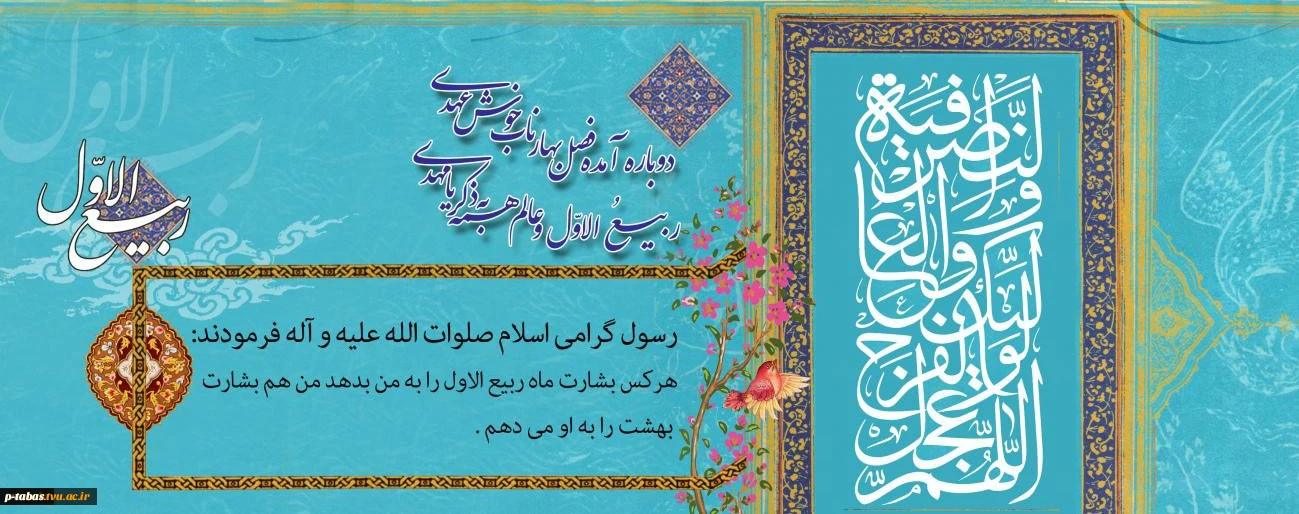 اللّهُمَّ عَجِّل
لوَلیِّکَ الفَرَج
وَالعافیَةَ وَالنَّصر
دوباره آمده فصل بهار ناب خوش عهدی
ربیعُ الاوّل و عالم همه به ذکر یا مهدی
ربیع الاوّل
رسول گرامی اسلام صلوات الله علیه و آله فرمودند:
هرکس بشارت ماه ربیع الاول را به من بدهد من هم بشارت
بهشت را به او می دهم .
p-tabas.tvu.ac.ir